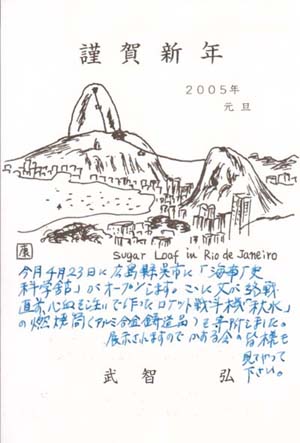 謹賀新年
2005年
元旦
Sugar Loaf in Rio de Janeiro
今月4月23日に広島縣呉市に「海事歴史
科学館」がオープンします。これに父が終戦
直前、心血を注いで作ったロケット戦斗機"秋水"
の燃焼筒(アルミ合金鋳造品)を寄附しました。
展示されますので 会の皆様も
見てやって
下さい。
武智 弘